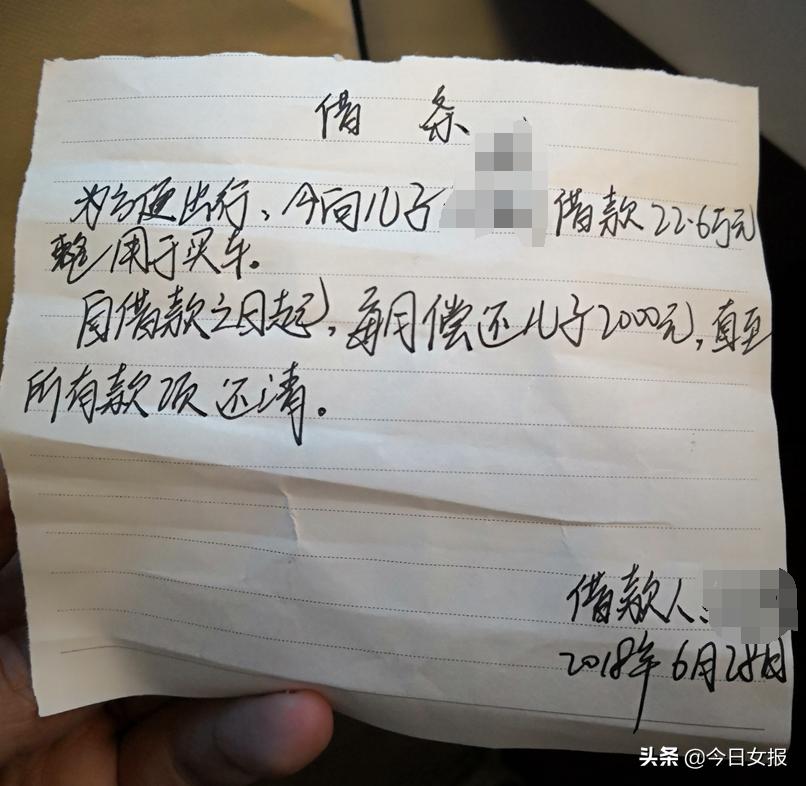 借 条
为方便出行、今向儿子 借款22.6万元
整,用于买车。
自借款之日起,每月偿还儿子2000元,直至
所有款项还清。
借款人:
2018年6月28日
头条 @今日女报